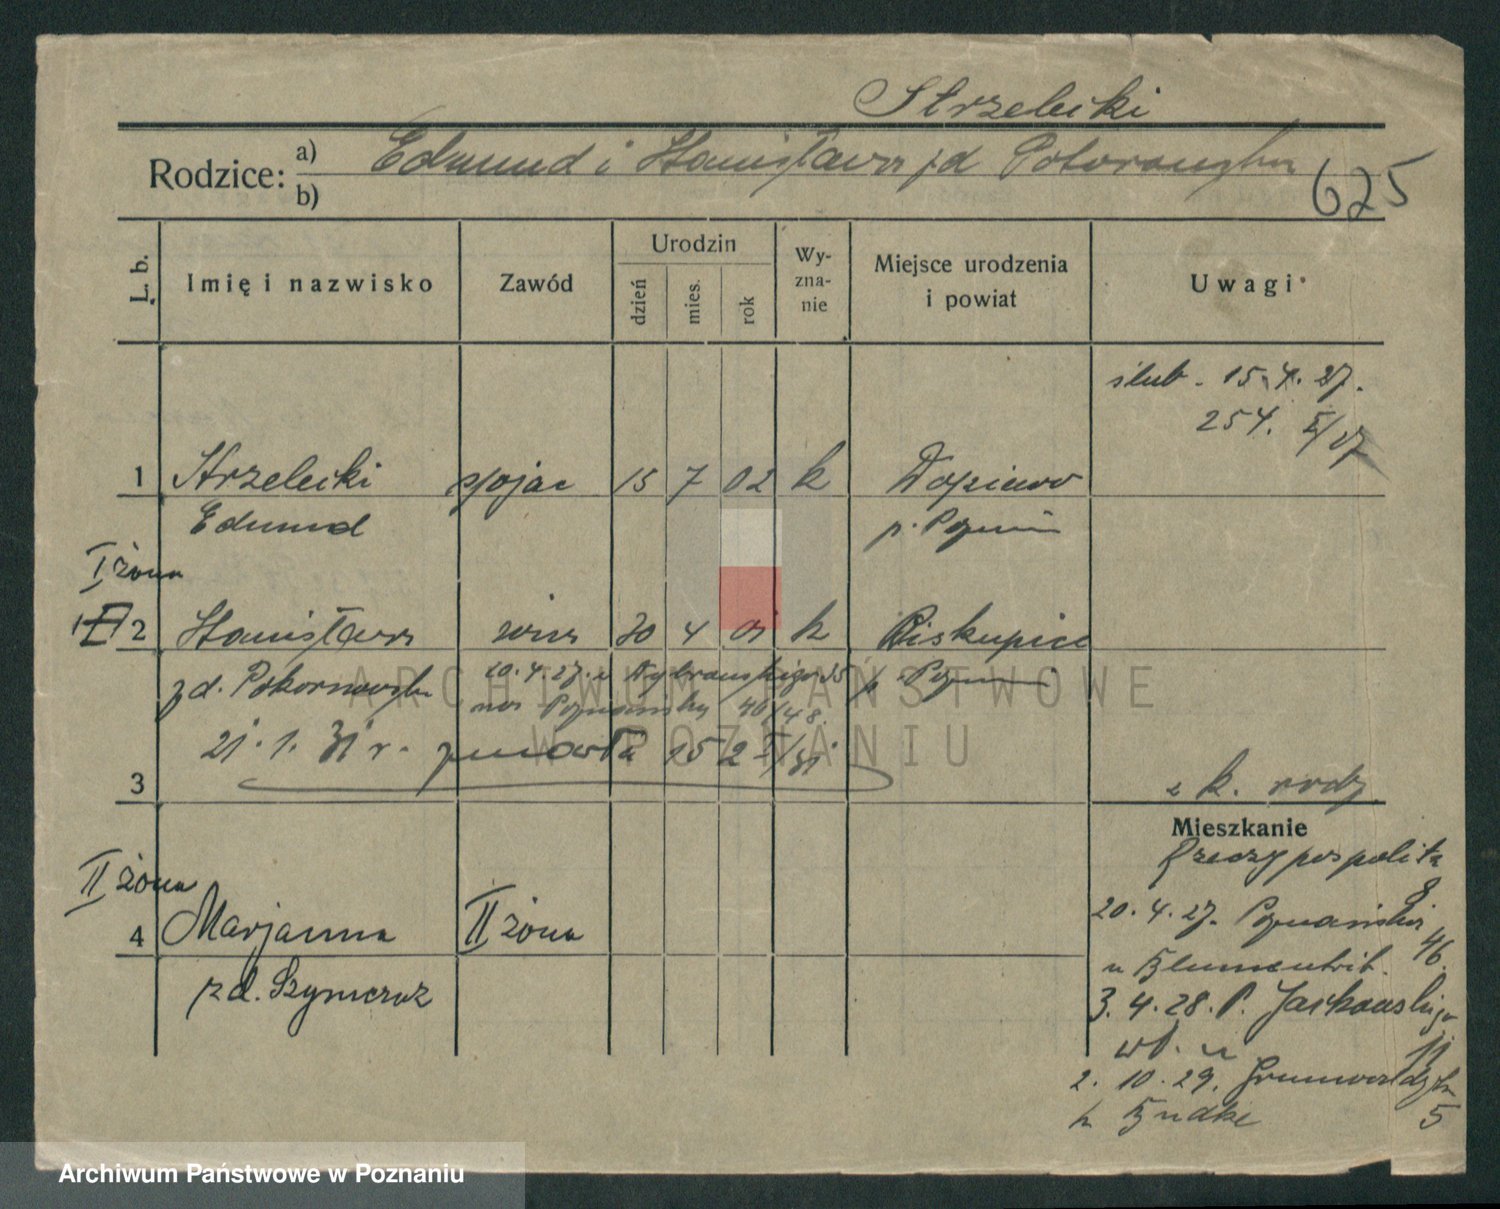 Strzelecki
Rodzice: a) Edmund i Stanisława zd Pokorowska
b)
625
L. b.
Imię i nazwisko
Zawód
Urodzin
dzień
mies.
rok
Wy-
zna-
nie
Miejsce urodzenia
i powiat
Uwagi
ślub - 15.4.27.
254. /27
1 Strzelecki
Edmund
15 7 02 k Dopiewo
p. Poznań
I żona
2 Stanisława
30 4 01 k Biskupice
zd. Pokornowska
20.4.27. 35
p. Poznań
46/48.
21.1.31 r. zmarła 152 I/31
3
z k. rodz
Mieszkanie
Rzeczypospolita
8
II żona
4 Marjanna II żona
zd. Szymczak
20.4.27. Poznańska
46.
u Blumentrit.
3.4.28. P. Jackowskiego
11
wł. u
2.10.29. Grunwaldzka
5
ARCHIWUM PAŃSTWOWE
W POZNANIU
Archiwum Państwowe w Poznaniu